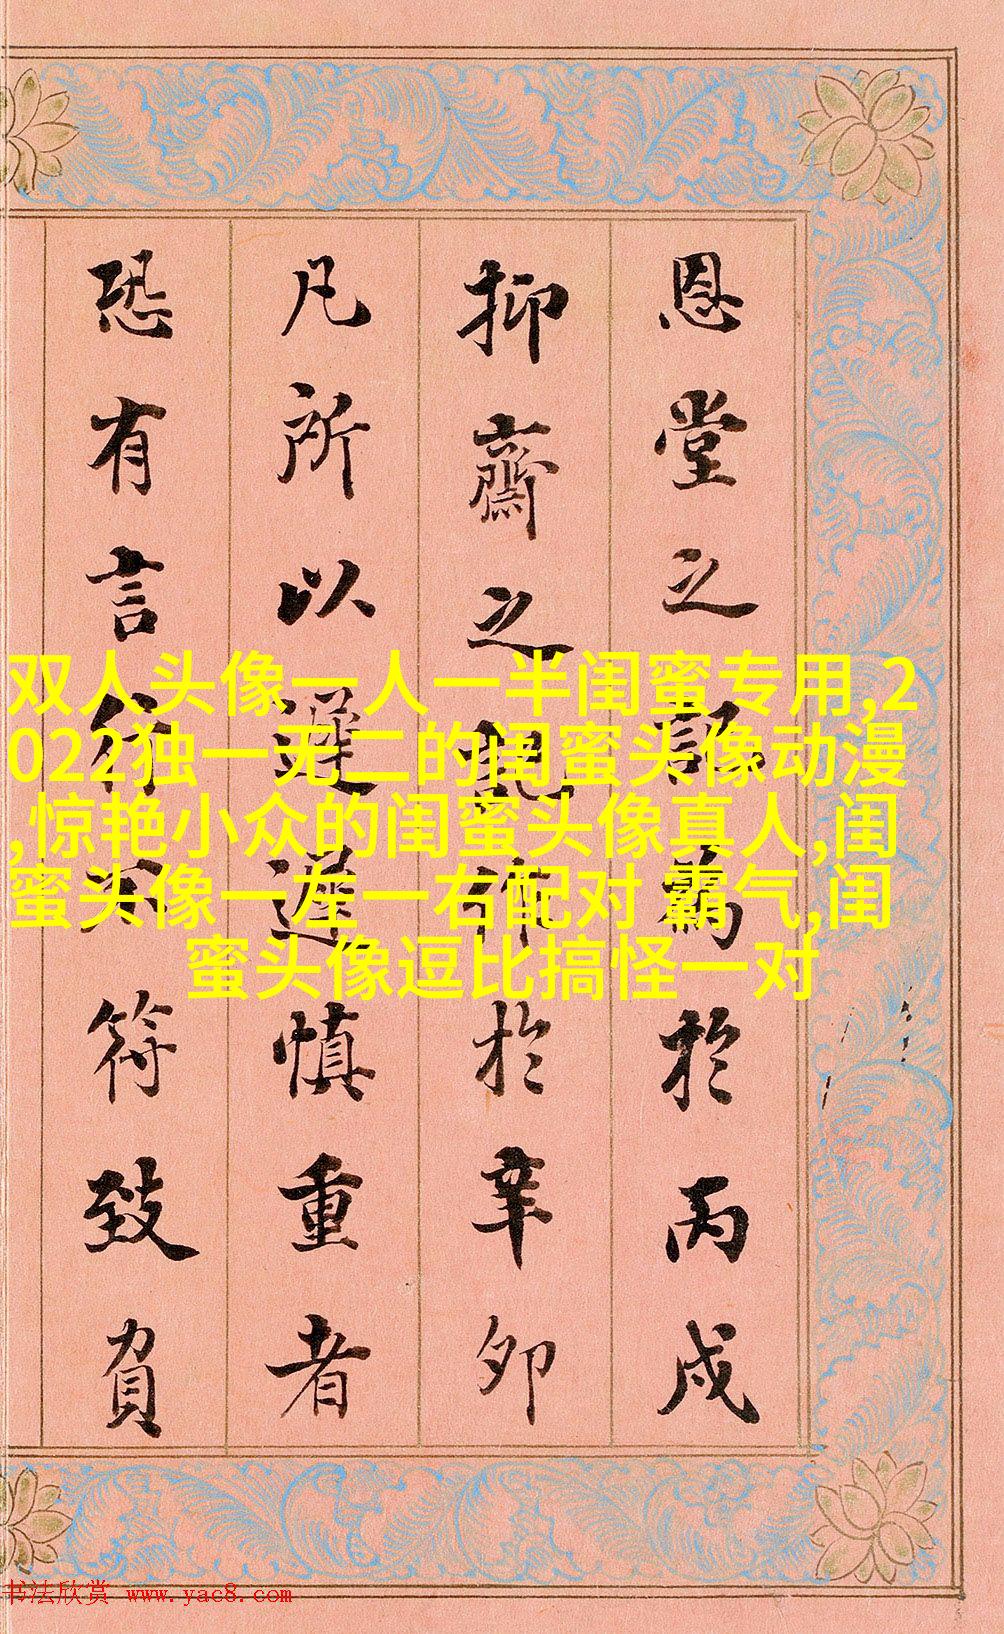 恩堂之記為於丙戌
抑齋之作於辛卯
凡所以遲遲慎重者
恐有言行不符致負
双人头像一人一半闺蜜专用,2
022独一无二的闺蜜头像动漫
,惊艳小众的闺蜜头像真人,闺
蜜头像一左一右配对 霸气,闺
蜜头像逗比搞怪一对
书法欣赏 www.yac8.com